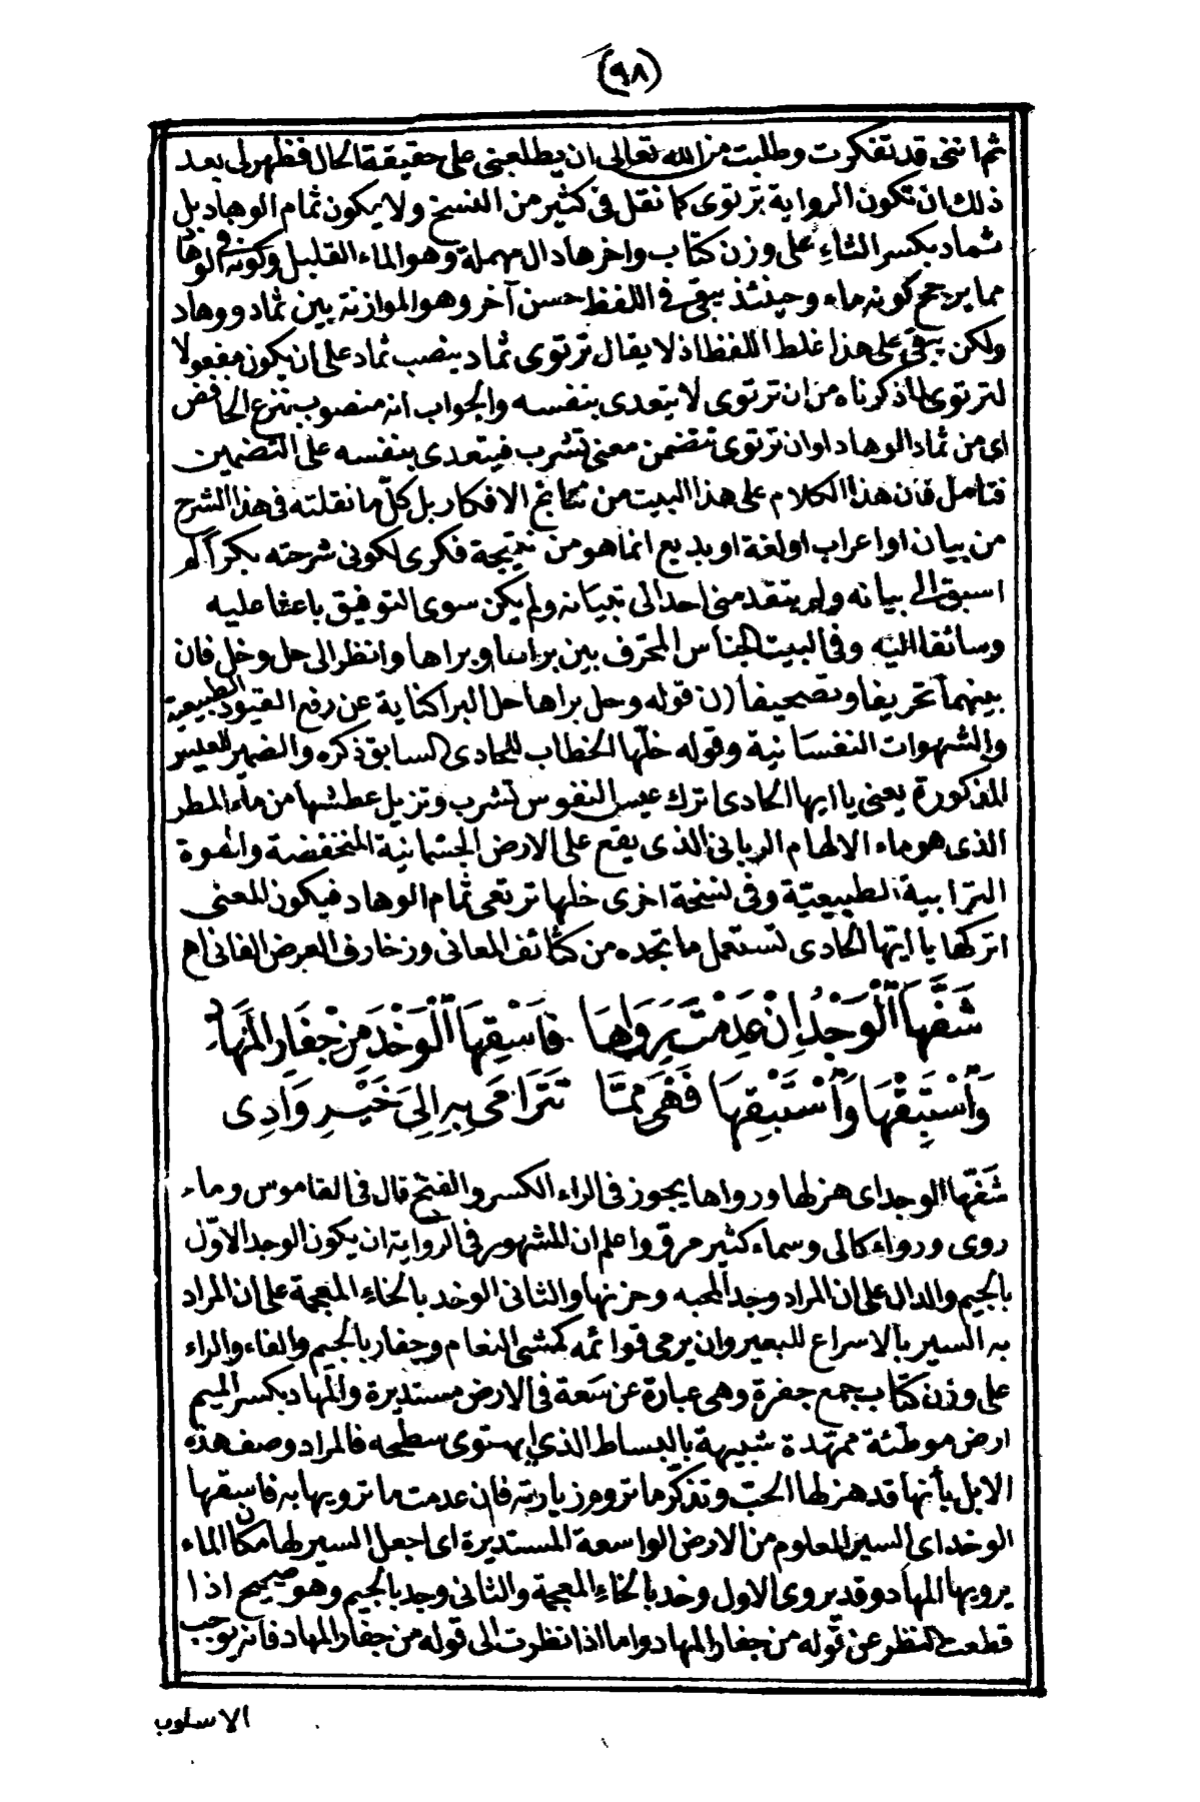 (٩٨)
ثم اننى قد تفكرت وطلبت من الله تعالى ان يطلعنى على حقيقة الحال فظهر لى بعد
ذلك ان تكون الرواية ترتوى كما نقل فى كثير من النسخ ولا يكون ثمام الوهاد بل
ثماد بكسر الثاء على وزن كتاب واخرها دال مهملة وهو الماء القليل وكونه فى الوهاد
مما يرجح كونه ماء وحينئذ يبقى فى اللفظ حسن آخر وهو الموازنة بين ثماد ووهاد
ولكن يبقى على هذا غلط اللفظ اذ لا يقال ترتوى ثماد بنصب ثماد على ان يكون مفعولا
لترتوى لما ذكرناه من ان ترتوى لا يتعدى بنفسه والجواب انه منصوب بنزع الخافض
اى من ثماد الوهاد او ان ترتوى تتضمن معنى تشرب فيتعدى بنفسه على التضمين
فتأمل فان هذا الكلام على هذا البيت من نتايج الافكار بل كلّ ما نقلته فى هذا الشرح
من بيان او اعراب او لغة او بديع انما هو من نتيجة فكرى لكونى شرحته بكرا لم
اسبق الى بيانه ولم يتقدمنى احد الى تبيانه ولم يكن سوى التوفيق باعثا عليه
وسائقا اليه وفى البيت الجناس المحرّف بين براها وبراها وانظر الى حل وخل فان
بينهما تحريفا وتصحيفا (ن قوله وحل براها حل البرا كناية عن رفع القيود الطبيعية
والشهوات النفسانية وقوله خلّها الخطاب للحادى السابق ذكره والضمير للعيس
المذكورة يعنى يا ايها الحادى اترك عيس النفوس تشرب وتزيل عطشها من ماء المطر
الذى هو ماء الالهام الربانى الذى يقع على الارض الجثمانية المنخفضة والهوة
الترابية الطبيعيّة وفى نسخة اخرى خلها ترتعى ثمام الوهاد فيكون المعنى
اتركها يا ايها الحادى تستعمل ما تجده من كثائف المعانى وزخارف العرض الفانى اه
شَفَّهَا ٱلْوَجْدُ اِنْ عَدِمْتَ رِوَاهَا فَاسْقِهَا ٱلْوَخْدَ مِنْ جِفَارِ الْمِهَادِ
وَٱسْتَبِقْهَا وَٱسْتَبْقِهَا فَهْىَ مِمَّا تَتَرَامَى بِهِ اِلَى خَيْرِ وَادِى
شَفّها الوجد اى هزلها ورواها يجوز فى الراء الكسر والفتح قال فى القاموس وماء
روى ورواء كالى وسماء كثير مرو واعلم ان المشهور فى الرواية ان يكون الوجد الاوّل
بالجيم والدال على ان المراد وجد المحبه وحزنها والثانى الوخد بالخاء المعجمة على ان المراد
به السير بالاسراع للبعير وان يرمى قوائمه كمشى النعام وجفار بالجيم والفاء والراء
على وزن كتاب جمع جفرة وهى عبارة عن سَعة فى الارض مستديرة والمهاد بكسر الميم
ارض موطئة ممهّدة شبيهة بالبساط الذى يستوى سطيحه فالمراد وصف هذه
الابل بأنها قد هزلها الحبّ وتذكّر ما تروم زيارته فان عدمت ما ترويها به فاسقها
الوخد اى السير المعلوم من الارض الواسعة المستديرة اى اجعل السير لها مكان الماء
يرويها المهاد وقد يروى الاول وخد بالخاء المعجمة والثانى وجد بالجيم وهو صحيح اذا
قطعت النظر عن قوله من جفار المهاد واما اذا نظرت الى قوله من جفار المهاد فانه يوجب
الاسلوب